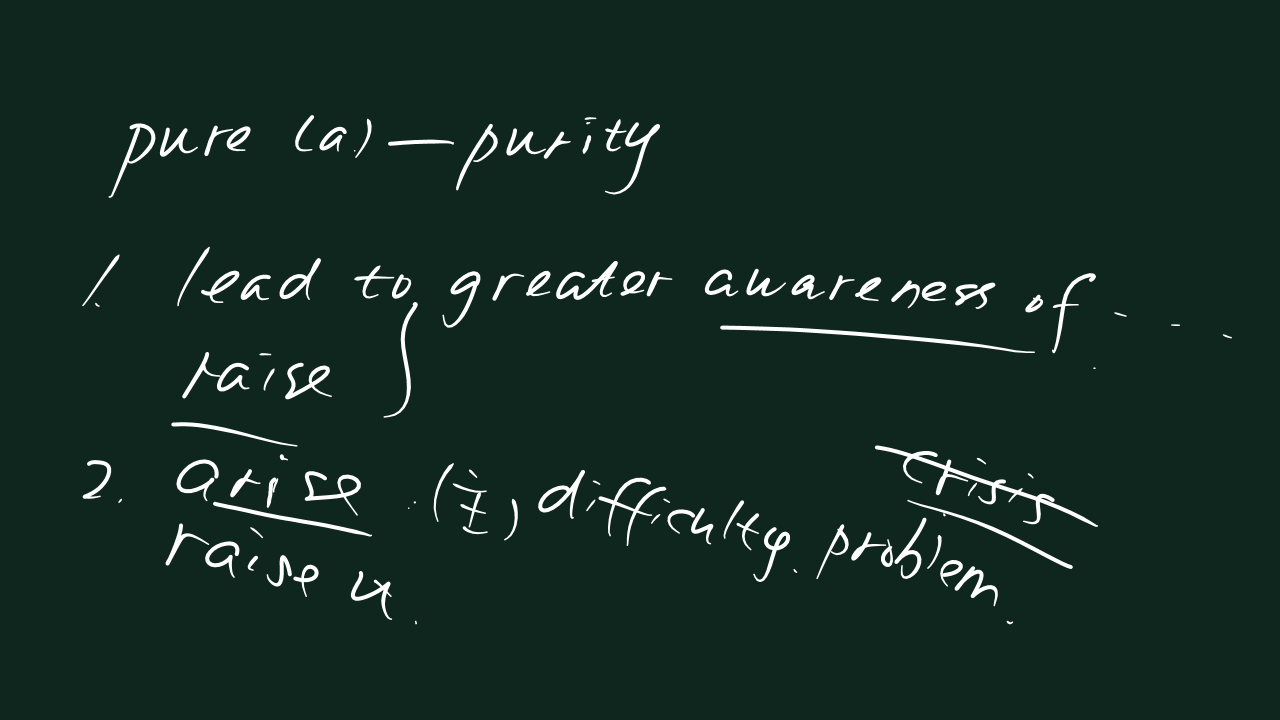 pure (a.) — purity
1. lead to greater awareness of - - - .
raise }
2. arise (主) difficulty. problem. crisis
raise u.